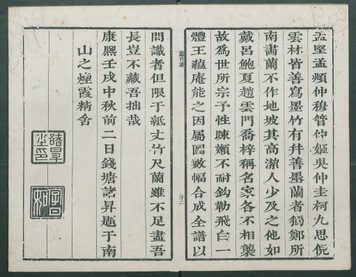 孟堅孟頫仲穆管仲姬吳仲圭柯九思倪
雲林皆善寫墨竹有幷善墨蘭者獨鄭所
南畫蘭不作地坡其高潔人少及之他如
戴呂鮑夏趙雲門喬梓稱名家各不相襲
故爲世所宗予性踈嬾不耐鈎勒飛白一
體王蘊庵能之因屬圖數幅合成全譜以
問識者但限于紙丈竹尺蘭雖不足盡吾
長豈不藏吾拙哉
康熙壬戌中秋前二日錢塘諸昇題于南
山之煙霞精舍
諸昇之印